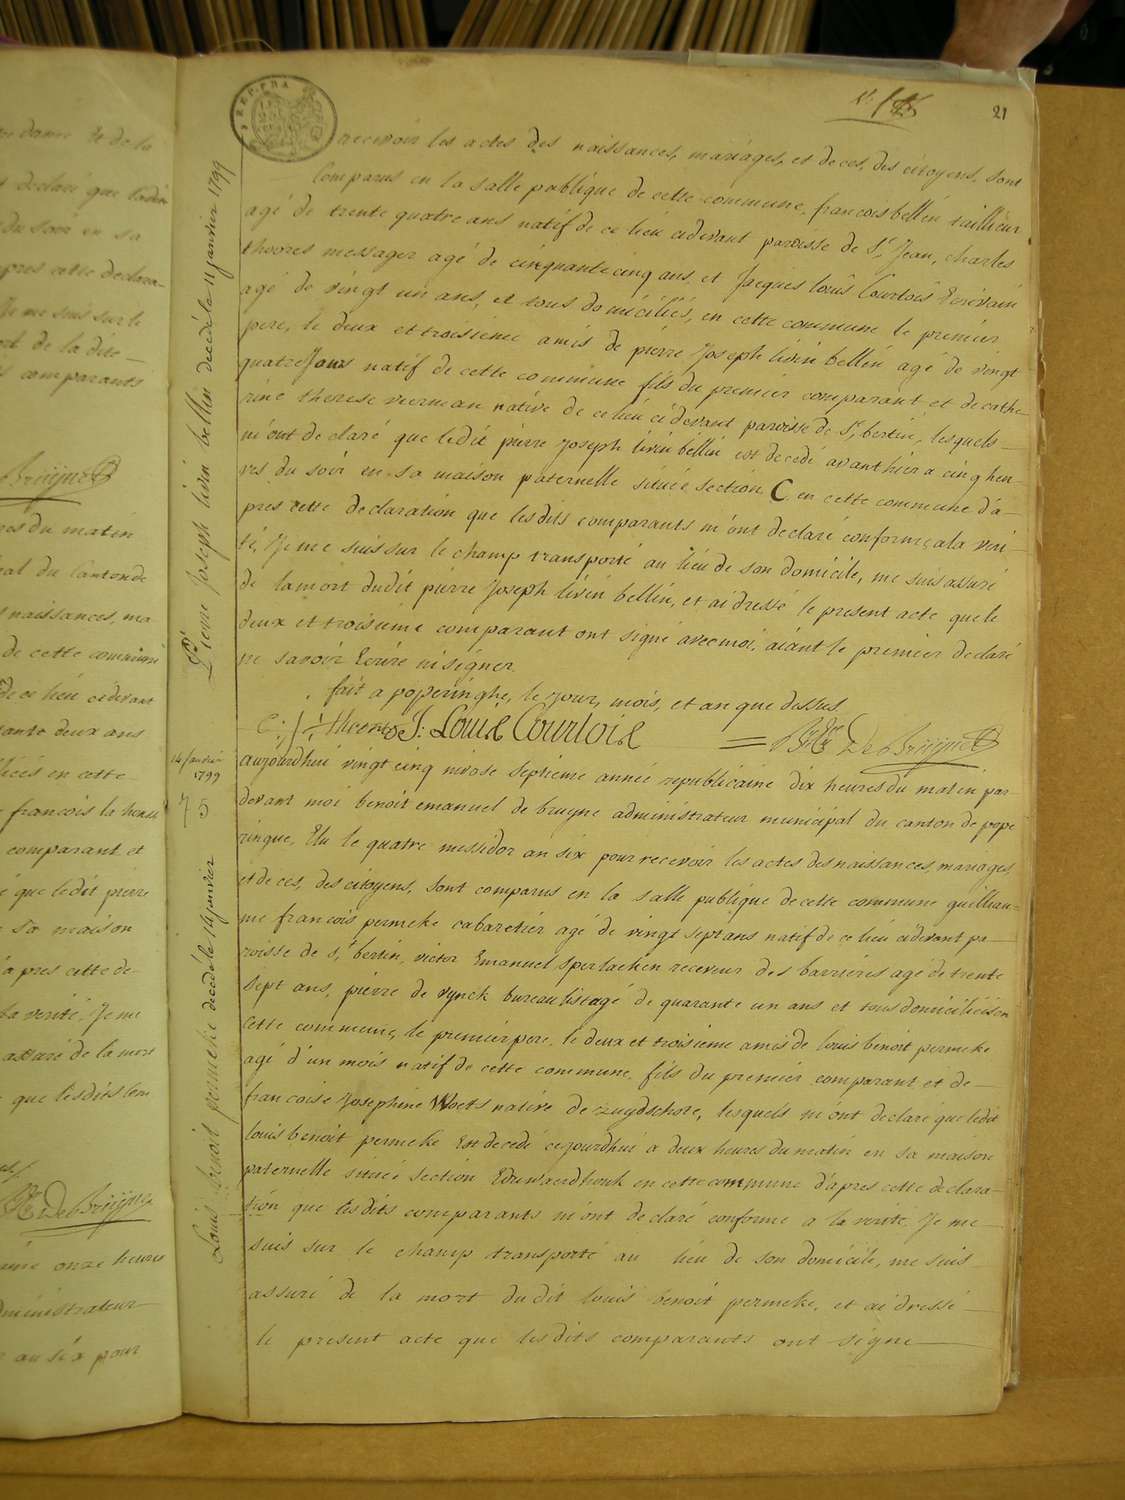 21
recevoir les actes des naissances, mariages, et deces, des citoyens, sont
Comparus en la salle publique de cette commune, francois bellin tailleur
agé de trente quatre ans natif de ce lieu cidevant paroisse de St Jean, charles
thoores messager agé de cinquante cinq ans, et Jacques louis Courtois Ecrivain
agé de vingt un ans, et tous domiciliés, en cette commune le premier
pere, le deux et troisieme amis de pierre Joseph livin bellin agé de vingt
quatre Jours natif de cette commune fils du premier comparant et de cathe-
rine therese veerman native de ce lieu cidevant paroisse de St bertin, lesquels
m'ont declaré que ledit pierre Joseph livin bellin est decedé avant hier a cinq heu-
res du soir en sa maison paternelle située section C en cette commune d'a-
pres cette declaration que lesdits comparants m'ont declaré conforme, a la veri-
té, Je me suis sur le champ transporté au lieu de son domicile, me suis assuré
de la mort dudit pierre Joseph livin bellin, et ai dressé le present acte que le
deux et troisieme comparant ont signé avec moi, aiant le premier declaré
ne savoir Ecrire ni signer.
fait a poperinghe, le jour, mois, et an que dessus.
J: Louis Courtois De Bruyne
aujourd'hui vingt cinq nivose septieme année republicaine dix heures du matin par
devant moi benoit emanuel de bruyne administrateur municipal du canton de pope
ringue, Elu le quatre messidor an six pour recevoir les actes des naissances, mariages,
et deces, des citoyens, sont comparus en la salle publique de cette commune guillau-
me francois permeke cabaretier agé de vingt sept ans natif de ce lieu cidevant pa-
roisse de St bertin, victor Emanuel sperlaeken receveur des barrieres agé de trente
sept ans, pierre de vynck bureauliste agé de quarante un ans et tous domiciliés en
cette commune, le premier pere, le deux et troisieme amis de louis benoit permeke
agé d'un mois natif de cette commune, fils du premier comparant et de
francoise Josephine Woets native de zuydschote, lesquels m'ont declaré que ledit
louis benoit permeke Est decedé cejourdhui a deux heures du matin en sa maison
paternelle située section Eduwaerdhouk en cette commune d'apres cette declara-
tion que lesdits comparants m'ont declaré conforme a la verité, Je me
suis sur le champ transporté au lieu de son domicile, me suis
assuré de la mort dudit louis benoit permeke, et ai dressé
le present acte que lesdits comparants ont signé
Pierre Joseph livin bellin decedé le 11 janvier 1799
14 Janvier
1799
75
Louis benoit permeke decedé le 14 janvier
declaré que
du soir en sa
apres cette declara-
Je me suis sur le
comparants
De Bruyne
du matin
du Canton de
naissances, ma
de cette commune
de ce lieu cidevant
deux ans
en cette
francois la
comparant et
que ledit pierre
sa maison
apres cette de-
la verité, Je me
assuré de la mort
que lesdits com
De Bruyne
onze heures
administrateur
an six pour